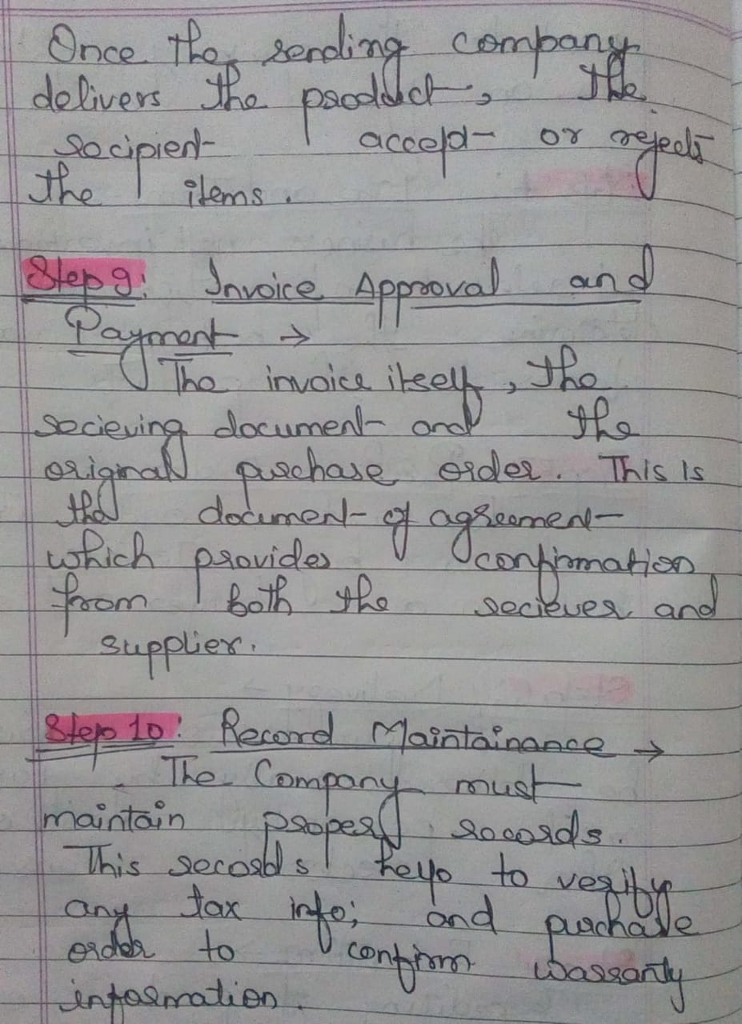 Once the sending company
delivers the product, the
recipient accept or rejects
the items.
Step 9: Invoice Approval and
Payment →
The invoice itself, the
recieving document and the
original purchase order. This is
the document of agreement
which provides confirmation
from both the reciever and
supplier.
Step 10: Record Maintainance →
The Company must
maintain proper records.
This records help to verify
any tax info; and purchase
order to confirm warranty
information.